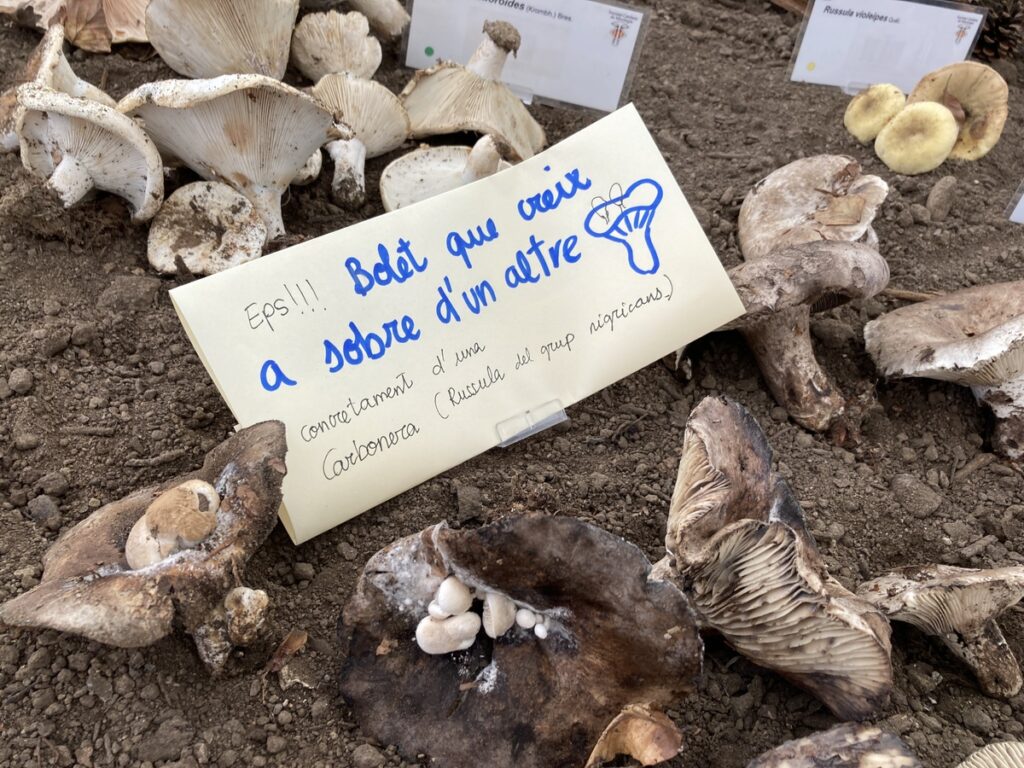 (Krombh.) Bres.
Russula violeipes Quél.
Eps!!! Bolét que creix
a sobre d'un altre
concretament d'una
Carbonera (Russula del grup nigricans.)